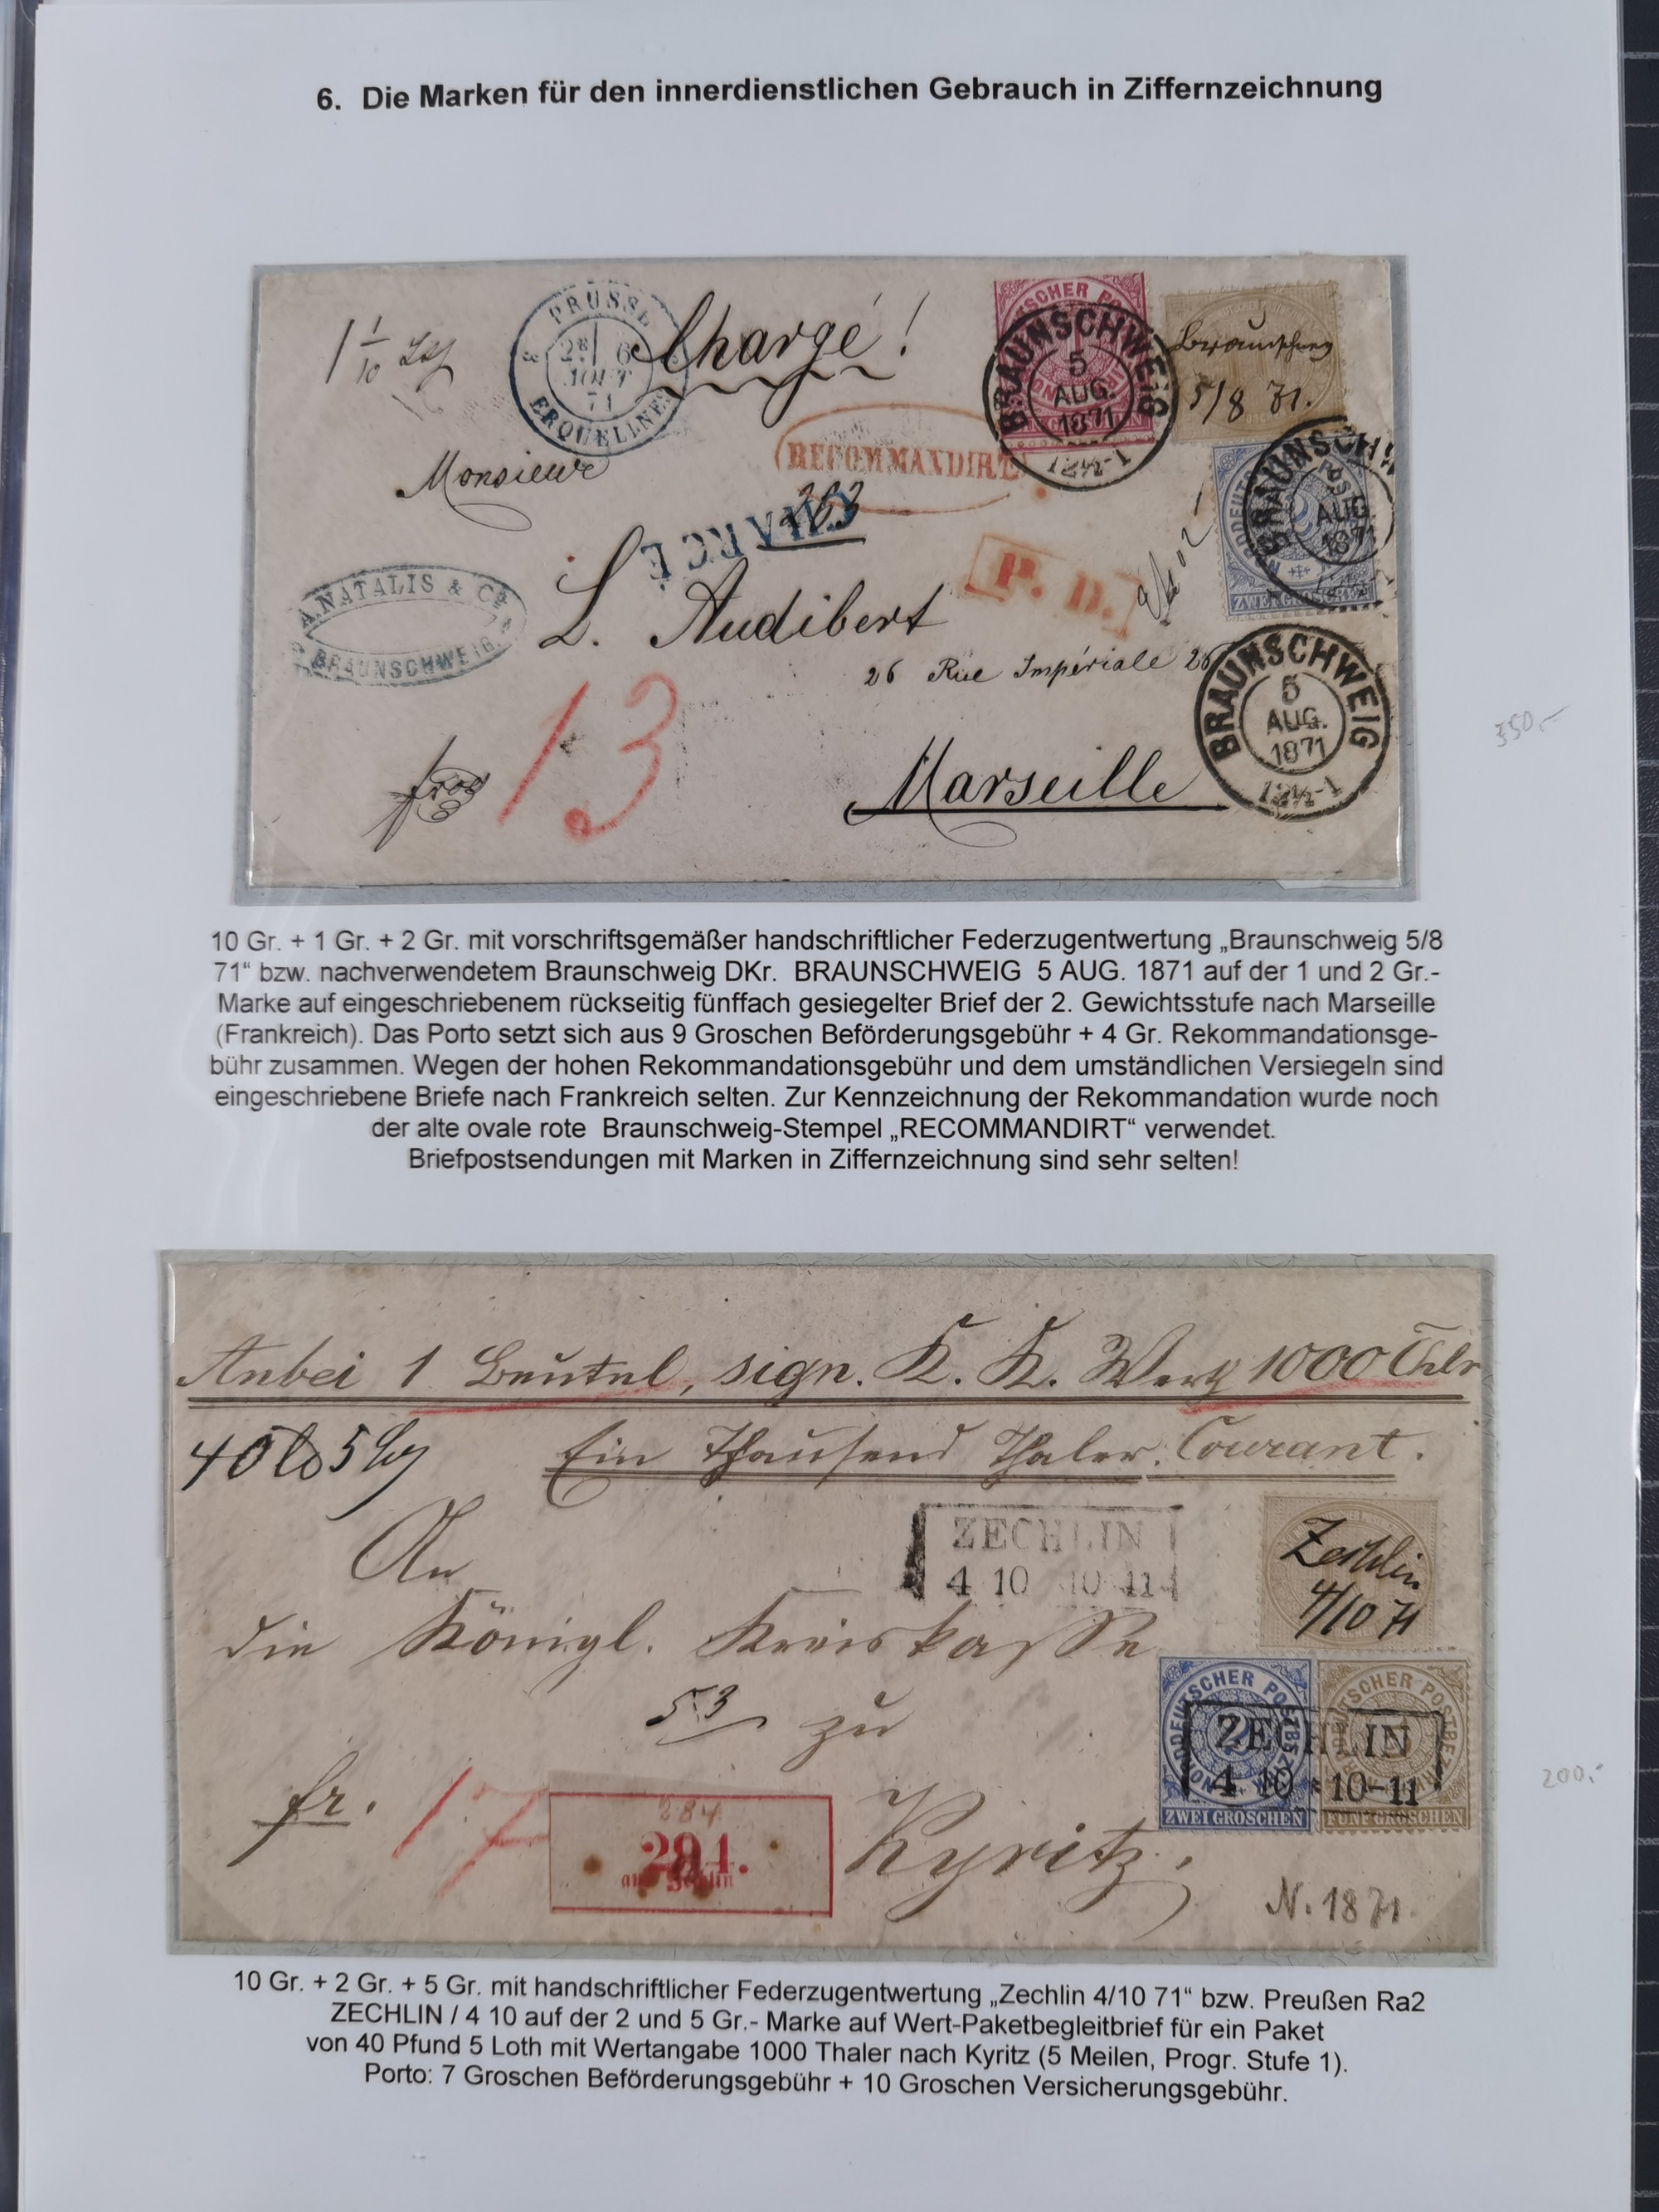 6. Die Marken für den innerdienstlichen Gebrauch in Ziffernzeichnung
1 1/10
PRUSSE
6
AOUT
71
ERQUELLINES
Chargé!
DEUTSCHER PO
BRAUNSCHWEIG
5
AUG.
1871
12½-1
Braunschweig
5/8 71.
RECOMMANDIRT
Monsieur
263
CHARGÉ
BRAUNSCHW
AUG
1871
ZWEI GROSCHEN
A. NATALIS & Co.
BRAUNSCHWEIG.
P. D.
L. Audibert
26 Rue Impériale 26
BRAUNSCHWEIG
5
AUG.
1871
12½-1
13
Marseille
350,-
10 Gr. + 1 Gr. + 2 Gr. mit vorschriftsgemäßer handschriftlicher Federzugentwertung „Braunschweig 5/8
71“ bzw. nachverwendetem Braunschweig DKr. BRAUNSCHWEIG 5 AUG. 1871 auf der 1 und 2 Gr.-
Marke auf eingeschriebenem rückseitig fünffach gesiegelter Brief der 2. Gewichtsstufe nach Marseille
(Frankreich). Das Porto setzt sich aus 9 Groschen Beförderungsgebühr + 4 Gr. Rekommandationsge-
bühr zusammen. Wegen der hohen Rekommandationsgebühr und dem umständlichen Versiegeln sind
eingeschriebene Briefe nach Frankreich selten. Zur Kennzeichnung der Rekommandation wurde noch
der alte ovale rote Braunschweig-Stempel „RECOMMANDIRT“ verwendet.
Briefpostsendungen mit Marken in Ziffernzeichnung sind sehr selten!
Anbei 1 Beutel, sign. K. K. Werth 1000 Thlr
40 5
Ein Thausend Thaler Courant.
An
ZECHLIN
4 10 10-11
Zechlin
4/10 71
die Königl. Kreiskasse
53 zu
NORDDEUTSCHER POSTBEZIRK
2
ZWEI GROSCHEN
FÜNF GROSCHEN
ZECHLIN
4 10 * 10-11
fr.
17
284
291.
aus Zechlin
Kyritz.
N. 1871.
200,-
10 Gr. + 2 Gr. + 5 Gr. mit handschriftlicher Federzugentwertung „Zechlin 4/10 71“ bzw. Preußen Ra2
ZECHLIN / 4 10 auf der 2 und 5 Gr.- Marke auf Wert-Paketbegleitbrief für ein Paket
von 40 Pfund 5 Loth mit Wertangabe 1000 Thaler nach Kyritz (5 Meilen, Progr. Stufe 1).
Porto: 7 Groschen Beförderungsgebühr + 10 Groschen Versicherungsgebühr.